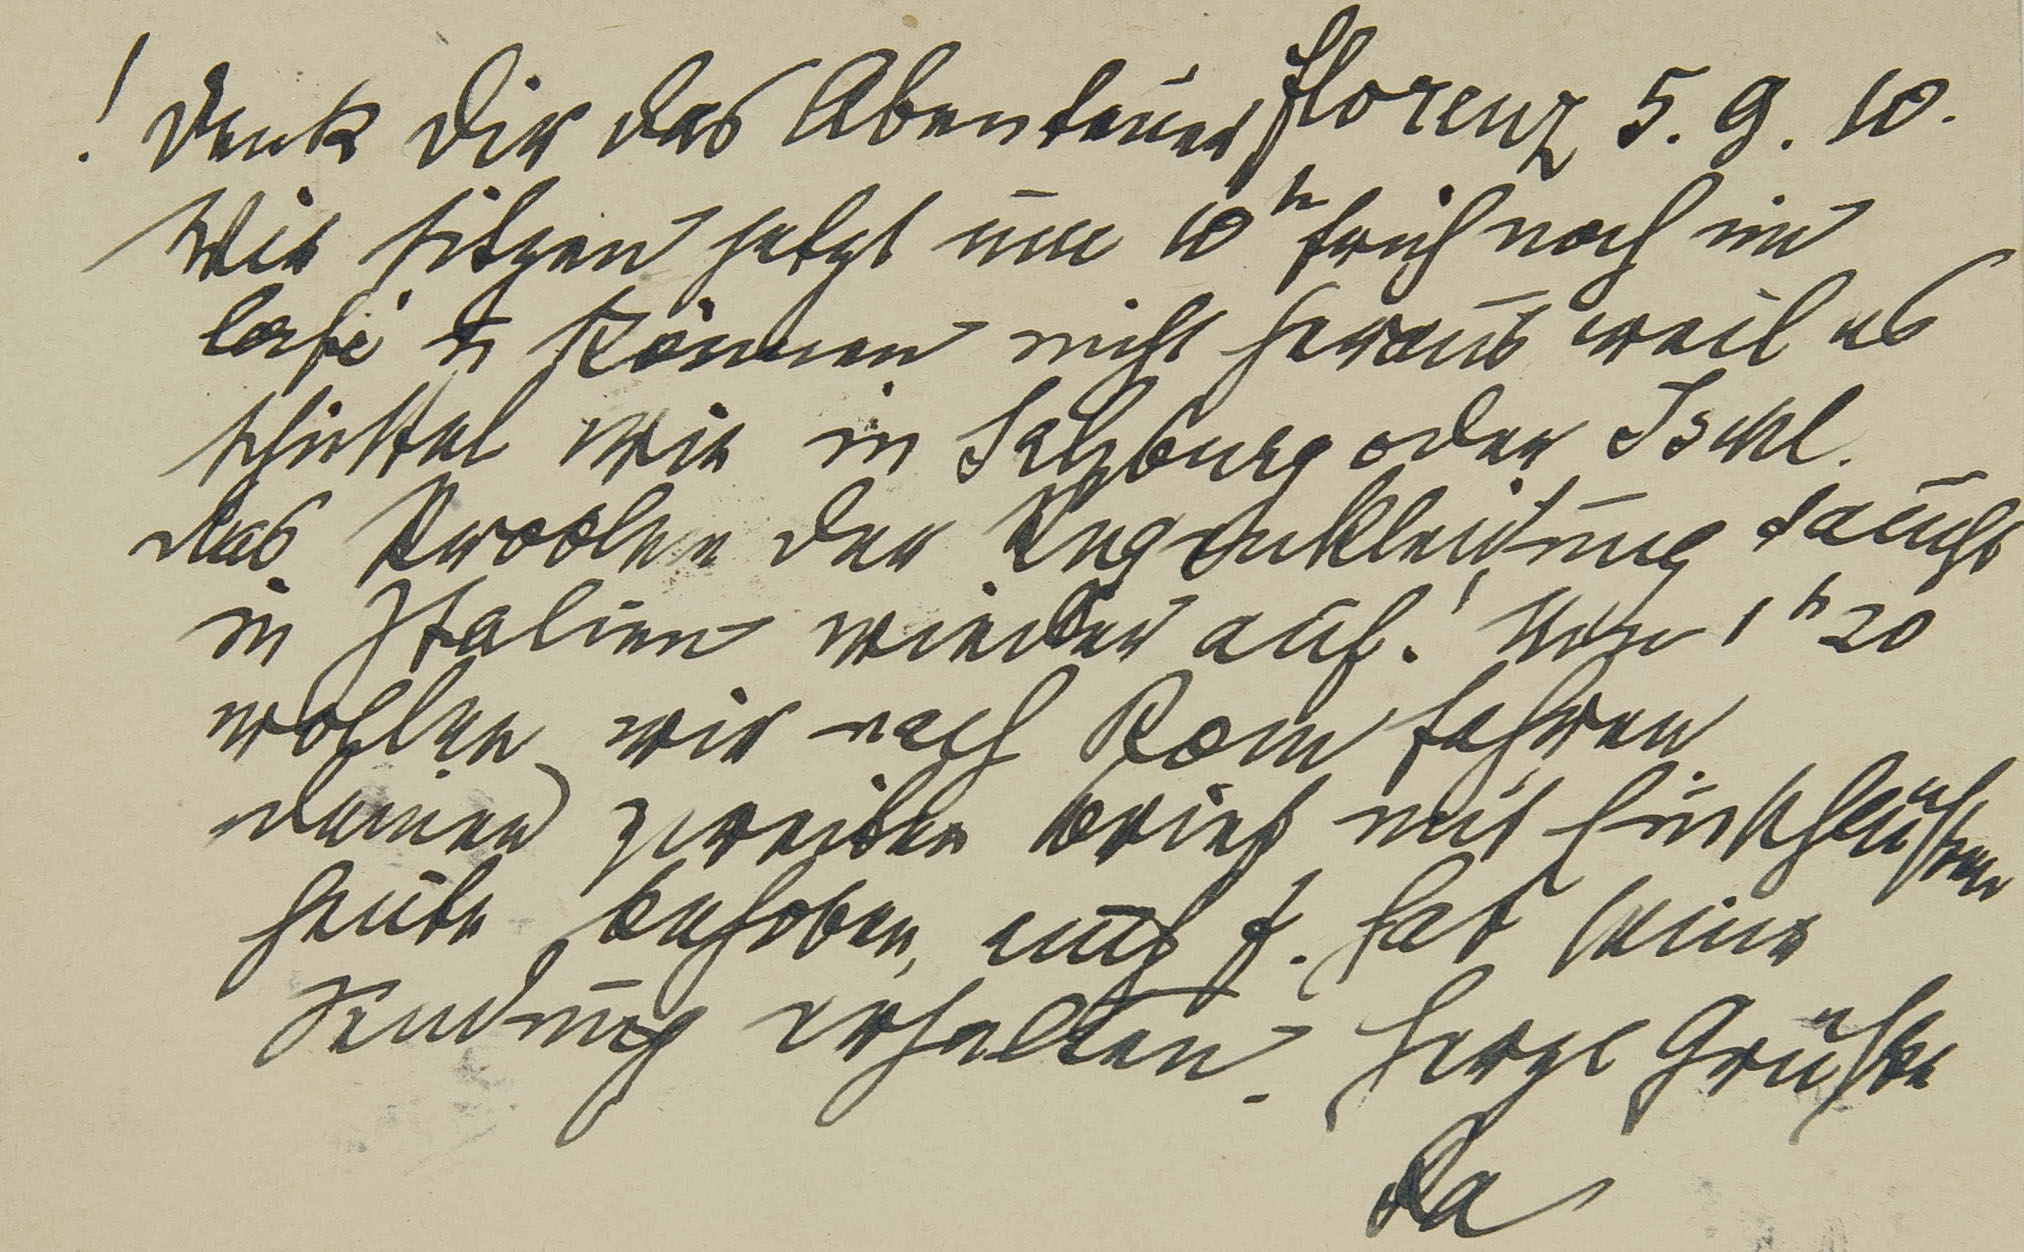 ! Denk Dir das Abenteuer Florenz 5. 9. 10.
Wir sitzen jetzt um 10h früh noch im
Café u können nicht heraus weil es
schüttet wie in Salzburg oder Ischl.
das Problem der Regenkleidung taucht
in Italien wieder auf! Um 1h 20
wollen wir nach Rom fahren
deinen zweiten Brief mit Einschlüssen
heute behoben, auch f. hat seine
Sendung erhalten. Herzl Grüße